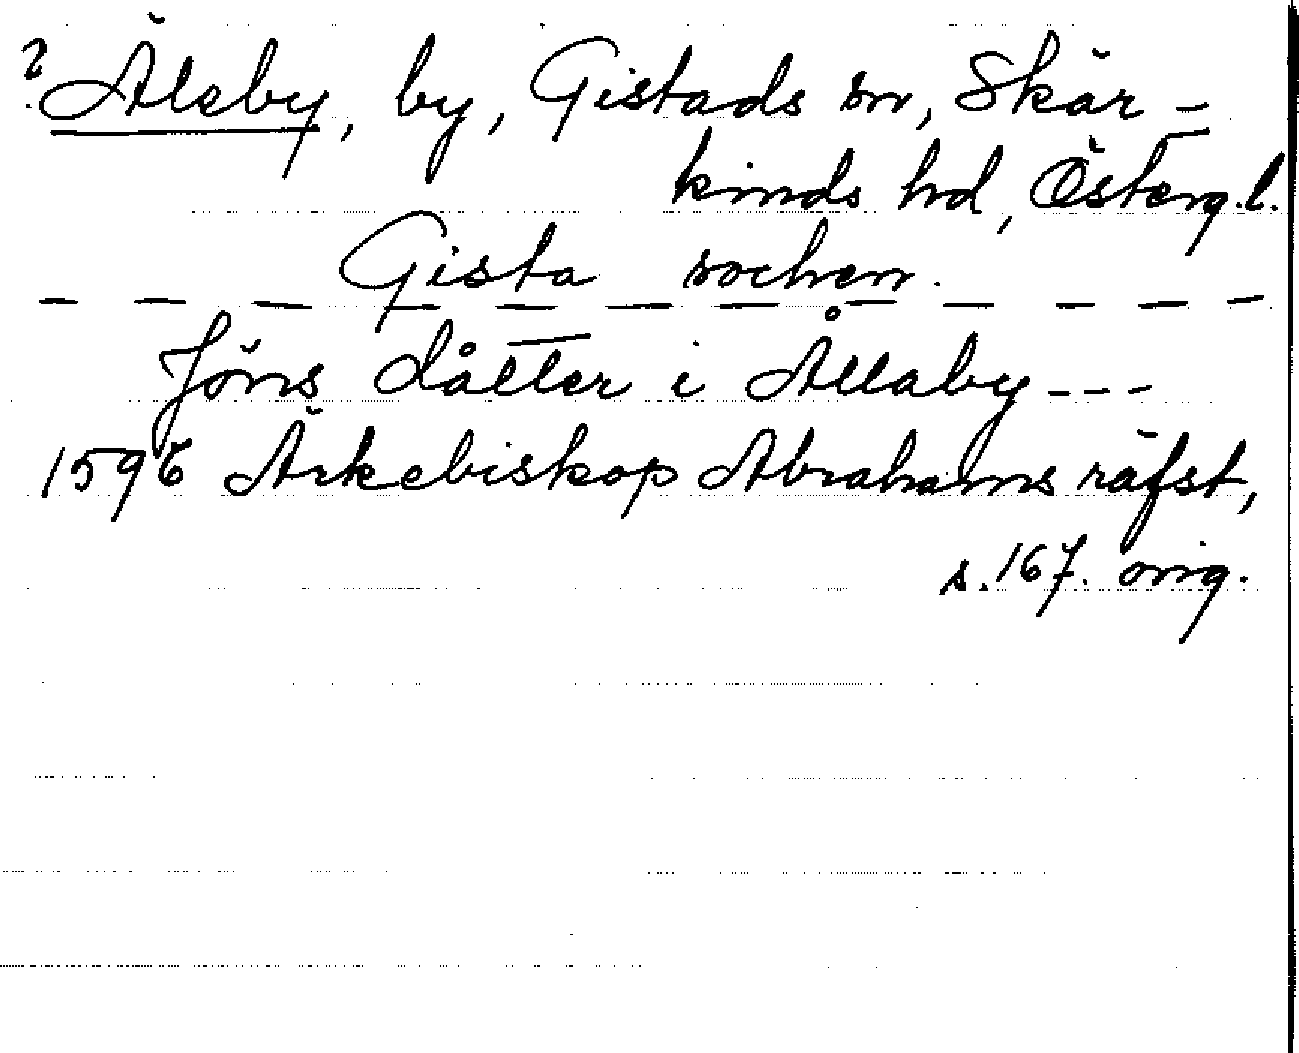 ? Äleby, by, Gistads sn, Skär-
kinds hd, Österg.l.
Gista sochen.
Jöns dåtter i Ållaby ---
1596 Ärkebiskop Abrahams räfst,
s. 167. orig.